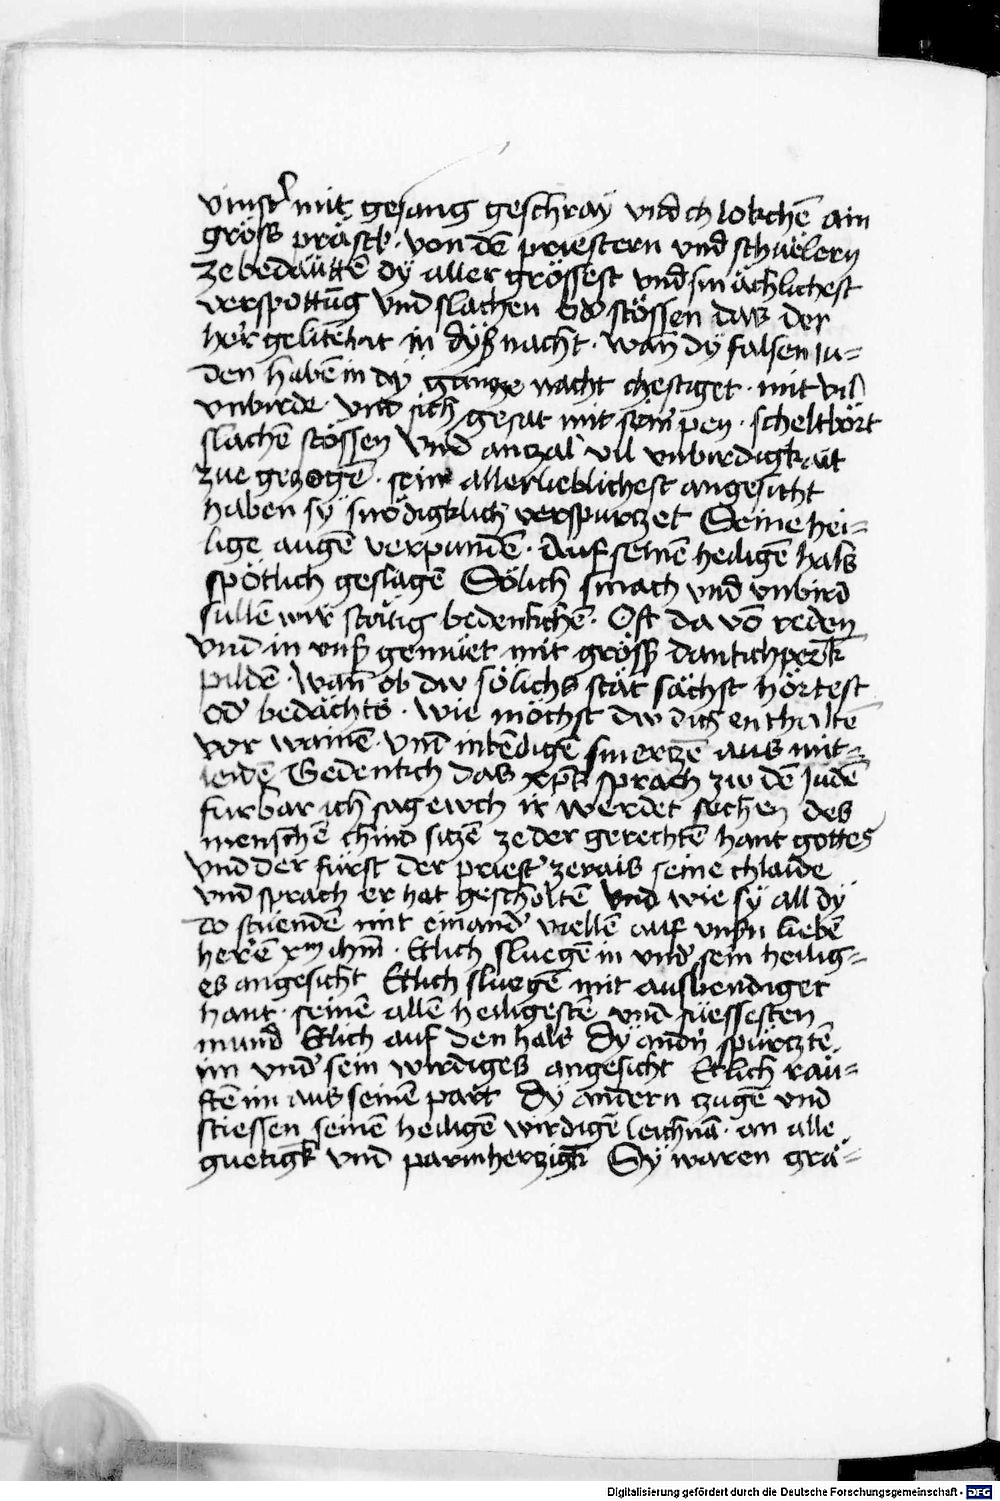 vinstˀ mit gesang geschraÿ vnd chlokchē ain
grôß prästk · von dē priestern vnd schuëlern
ze bedäuttē dÿ aller grössest vnd smächlichest
verspottūg vnd slachen vnd stössen das der
herˀ gelitē hat in dÿß nacht · wañ dÿ falsen iu-
den habē in dÿ gancze nacht chestiget · mit vil
vnbirde · vnd sich gesat mit seim pen · scheltbört
slachē stössen vnd anczal vil vnbirdigkait
zue geczogē · sein allerlieblichest angesicht
haben sÿ snödigklich verspurczet Seine hei-
lige augē verpundē · Auf seinē heiligē hals
spötlich geslagē Sölich smach vnd vnbird
sullē wir stätig bedenkchē · Oft da vō reden
vnd in vnsˀ gemüet mit grössˀ dankchperk
pildē · Wañ ob dw sölichs stät sächst hörtest
odˀ bedächts · wie möchst dw dich enthaltē
vor wainē · vnd inbēdigē smerczē aus mit-
leidē Gedenkch das xps sprach zw dē Judē
furbar ich sag ewch ir werdet sechen des
menschē chind siczē ze der gerechtē hant gottes
vnd der fürst der priestˀ zerais seine chlaide
vnd sprach er hat gescholtē vnd wie sÿ all dÿ
do stuendē mit einandˀ viellē auf vnsn liebē
herˀē xm ihm · Etlich sluegē in vndˀ sein heilig-
es angesicht Etlich sluegē mit ausbendiger
hant · seinē allē heiligestē vnd süessesten
mund Etlich auf den hals Dÿ andn spürcztē
im vndˀ sein wirdiges angesicht Etlich räu-
ftē im aus seinē part Dÿ andern czugē vnd
stiessen seinē heiligē wirdigē leichnā · an alle
guetigk vnd parmherczigk Sÿ waren grä-
Digitalisierung gefördert durch die Deutsche Forschungsgemeinschaft - DFG